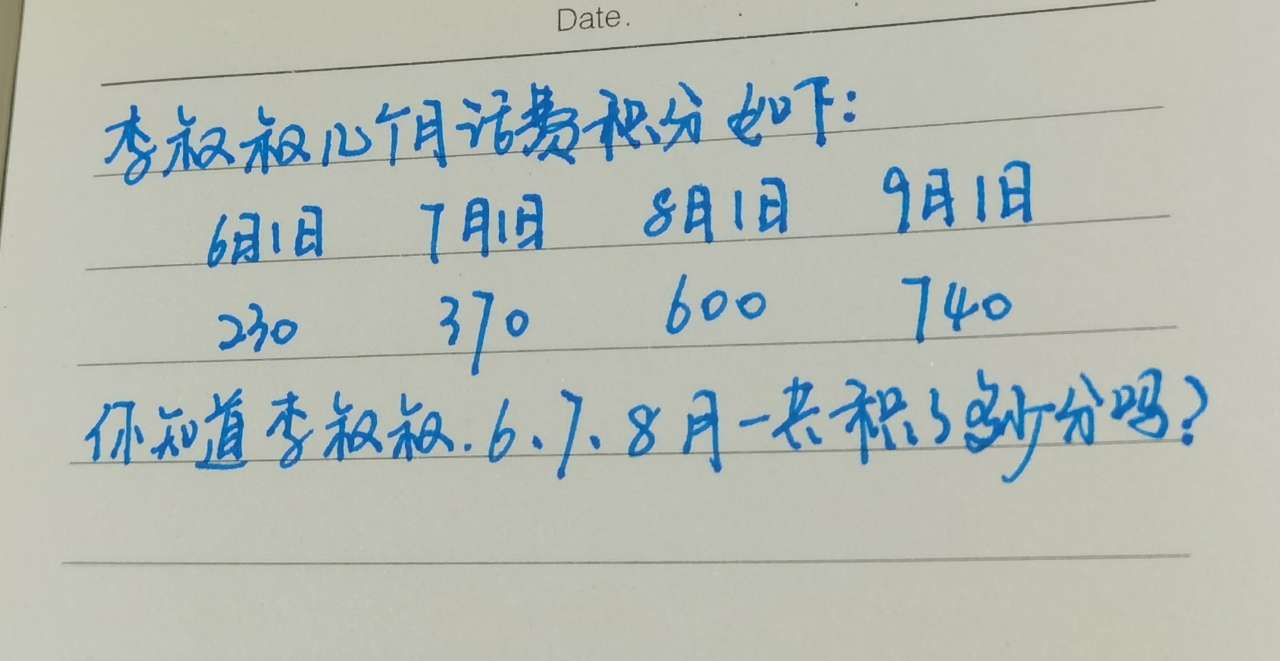 Date.
李叔叔几个月话费积分如下:
6月1日 7月1日 8月1日 9月1日
230 370 600 740
你知道李叔叔.6、7、8月一共积了多少分吗?